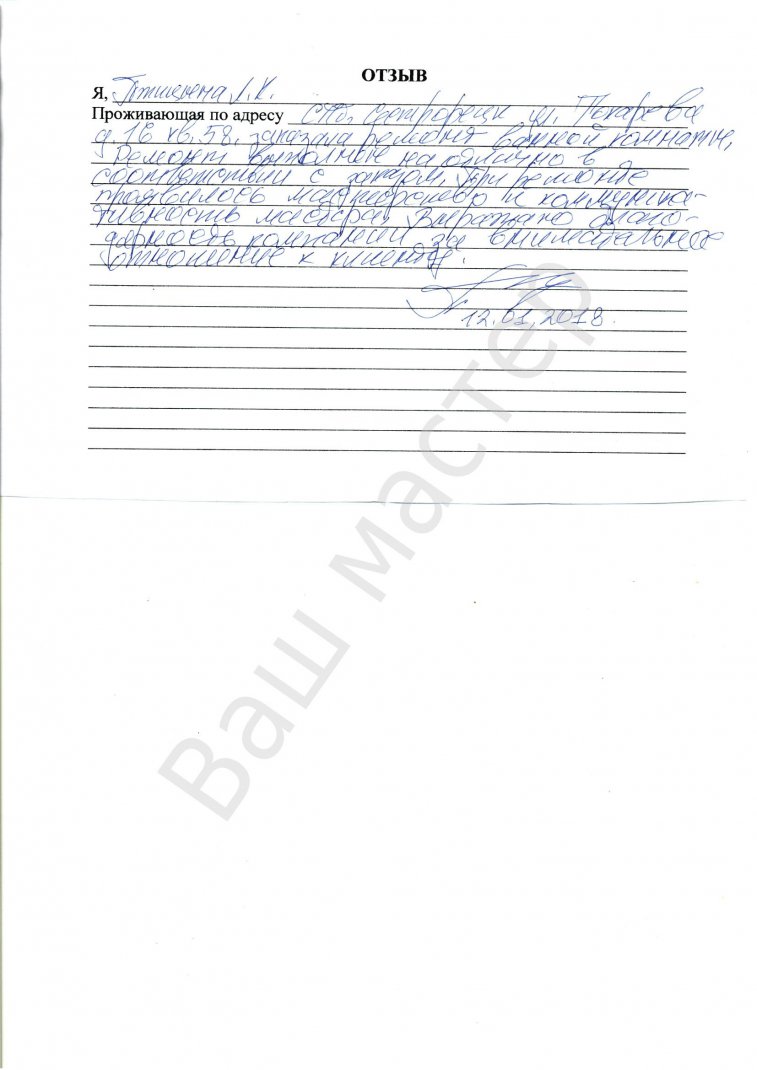 ОТЗЫВ
Я, Птицына Л. К.
Проживающая по адресу СПб, Сестрорецк ул. Токарева
д. 16 кв. 58. заказала ремонт ванной комнаты,
Ремонт выполнен на отлично в
соответствии с заказом. При ремонте
проявилось мастерство и коммуника-
тивность мастера. Выражаю благо-
дарность компании за внимательное
отношение к клиенту.
12.01.2018.
Ваш мастер